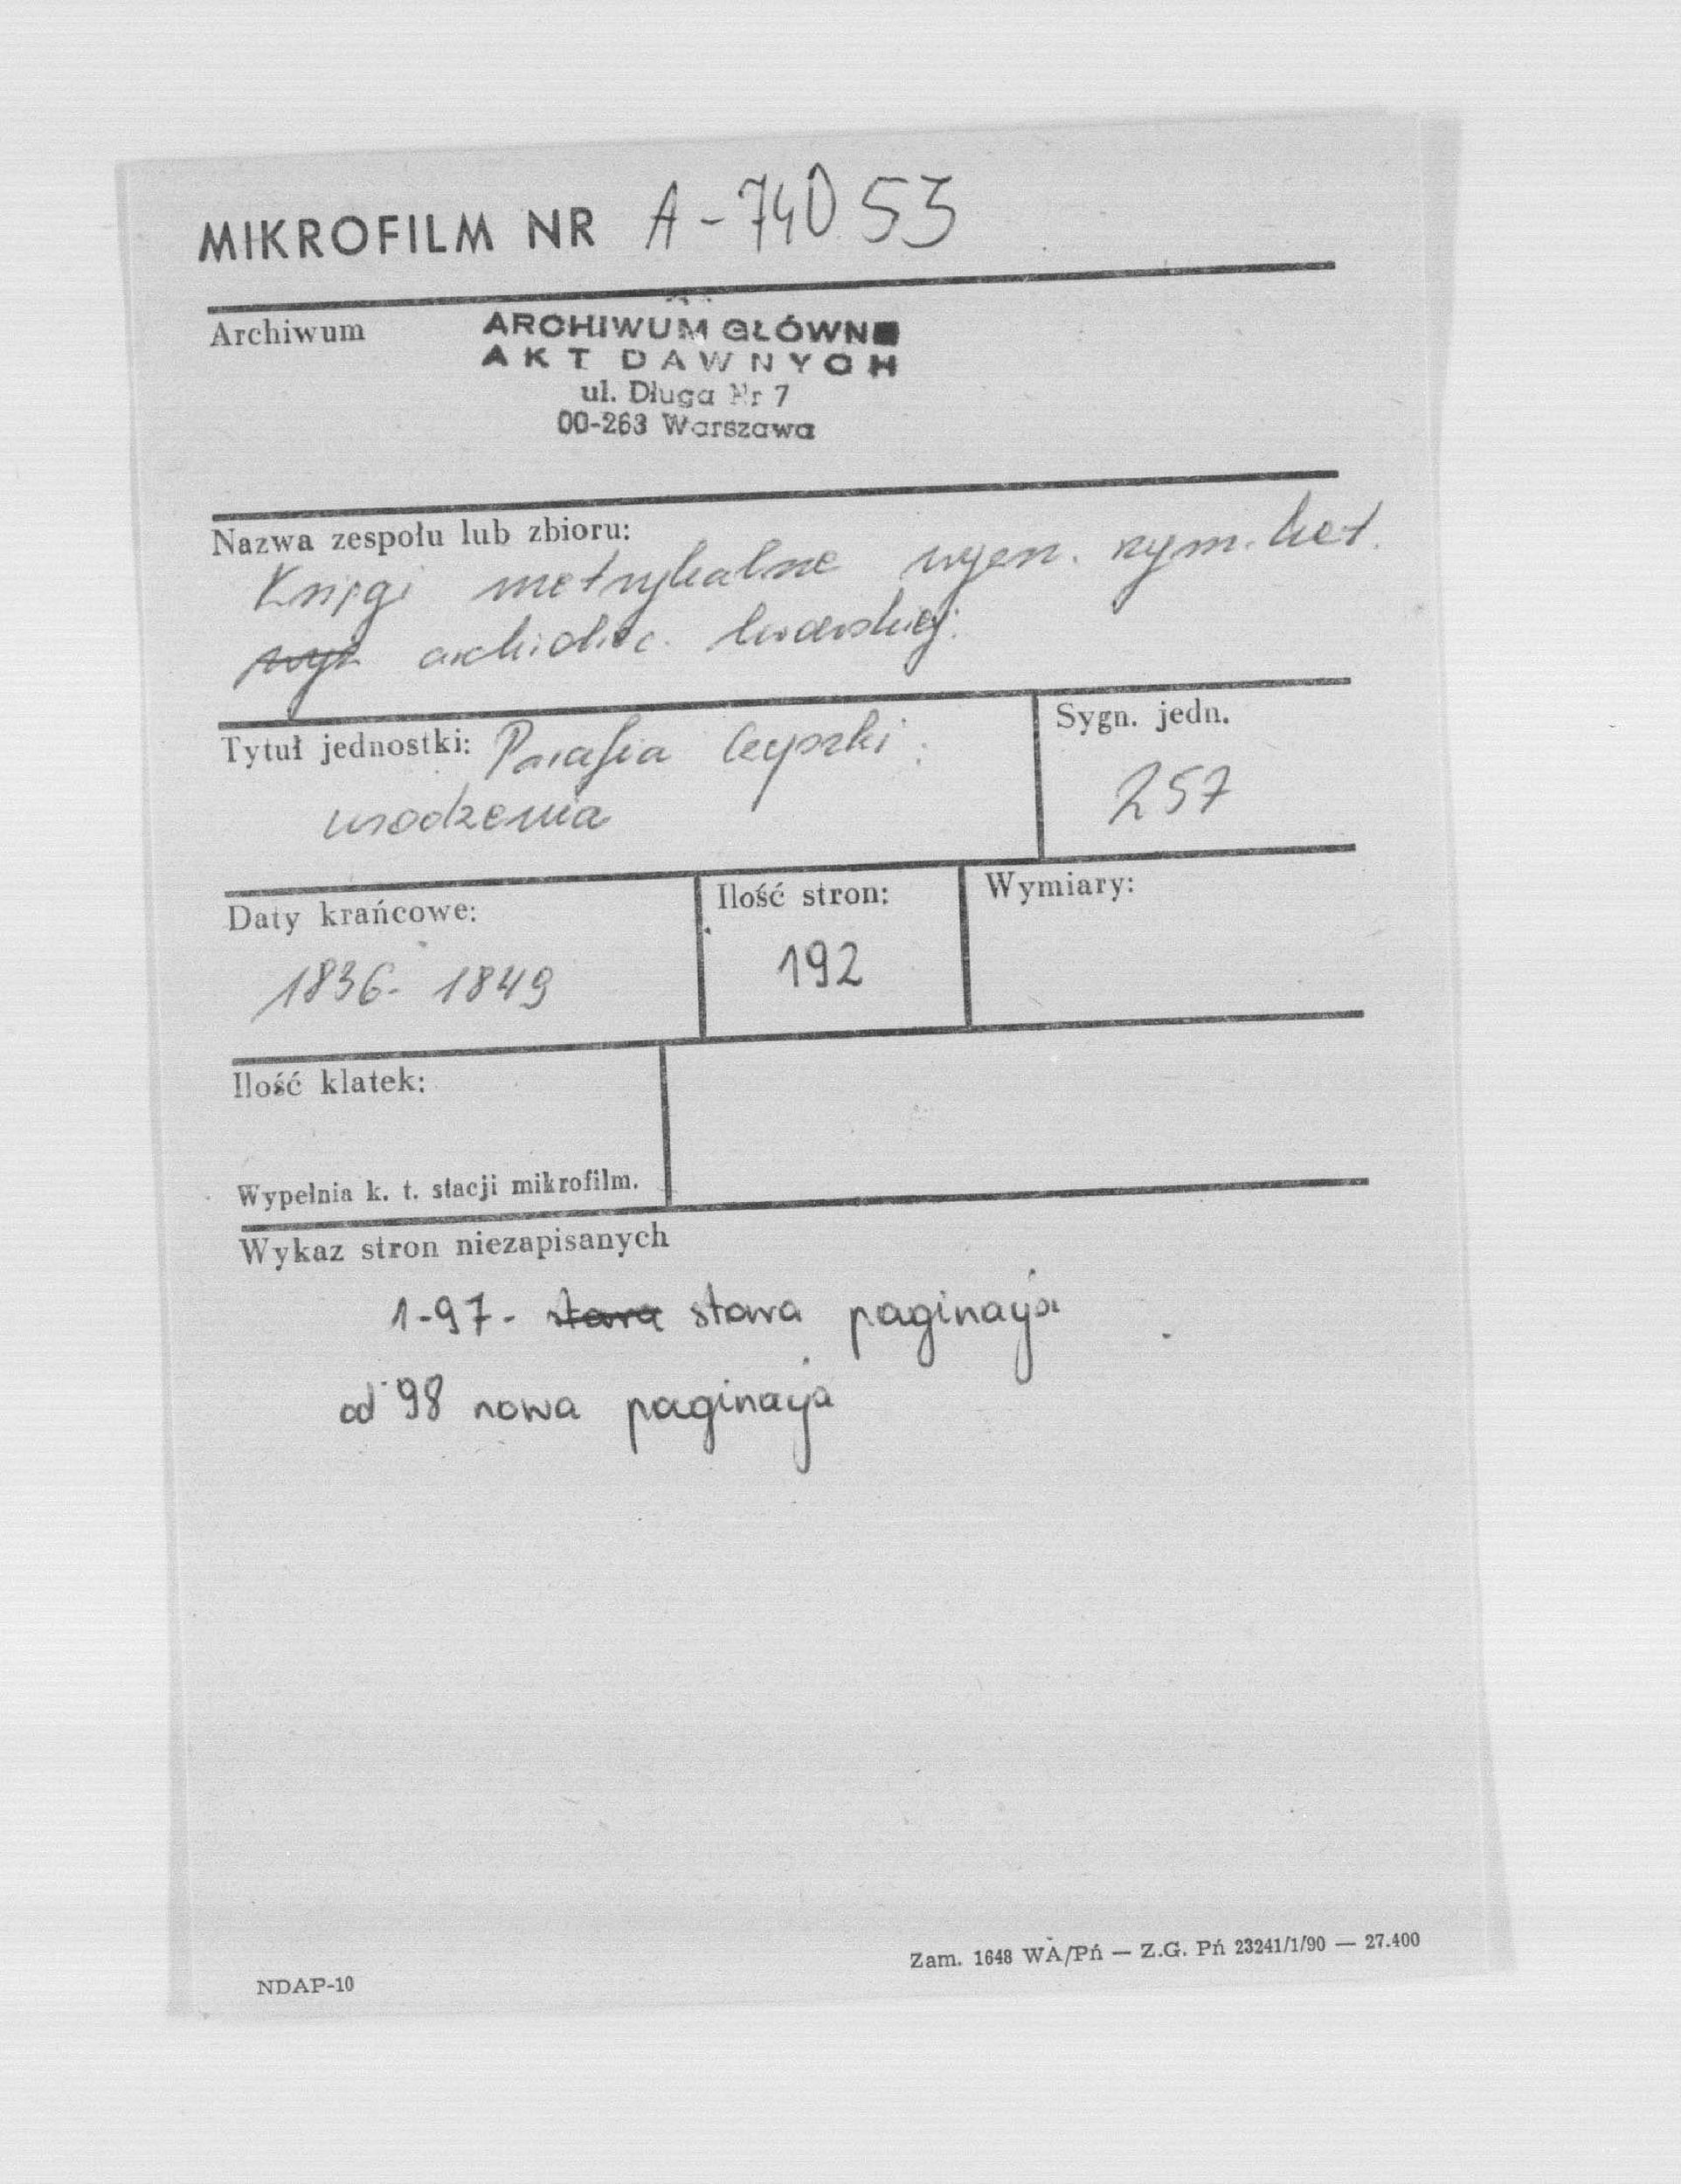 MIKROFILM NR A-74053
Archiwum
ARCHIWUM GŁÓWNE
AKT DAWNYCH
ul. Długa Nr 7
00-263 Warszawa
Nazwa zespołu lub zbioru:
Księgi metrykalne wyzn. rzym. kat.
archidiec. lwowskiej.
Tytuł jednostki: Parafia Cepszki:
urodzenia
Sygn. jedn.
257
Daty krańcowe:
1836-1849
Ilość stron:
192
Wymiary:
Ilość klatek:
Wypełnia k. t. stacji mikrofilm.
Wykaz stron niezapisanych
1-97- stara stara paginacja
od 98 nowa paginacja
Zam. 1648 WA/Pń — Z.G. Pń 23241/1/90 — 27.400
NDAP-10